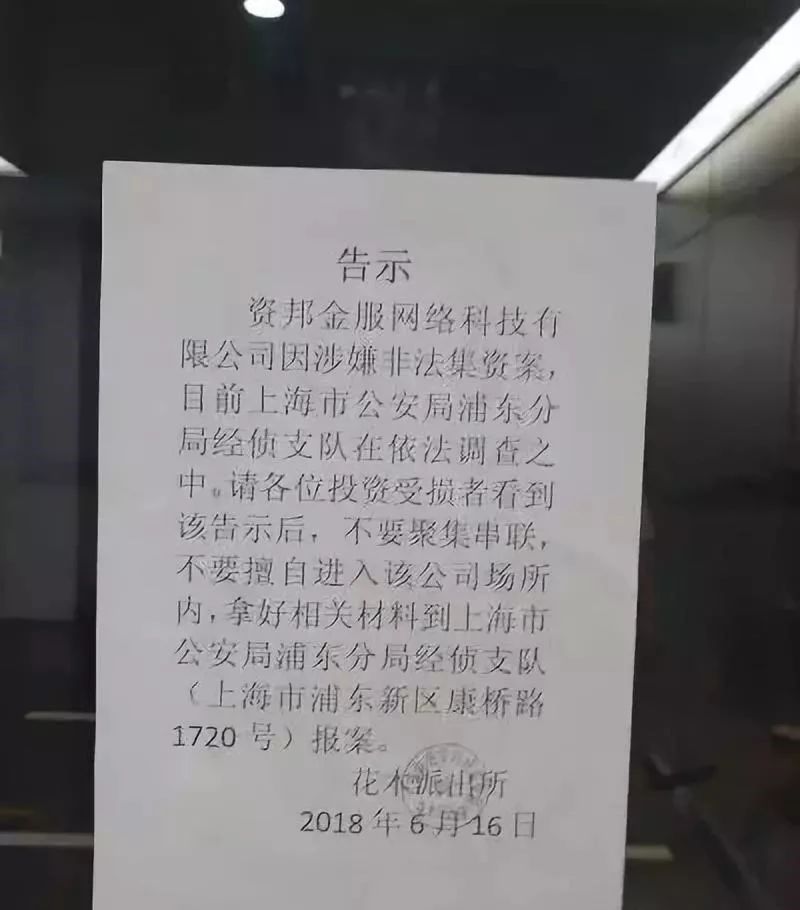 告示
资邦金服网络科技有
限公司因涉嫌非法集资案，
目前上海市公安局浦东分
局经侦支队在依法调查之
中。请各位投资受损者看到
该告示后，不要聚集串联，
不要擅自进入该公司场所
内，拿好相关材料到上海市
公安局浦东分局经侦支队
（上海市浦东新区康桥路
1720号）报案。
花木派出所
2018年6月16日